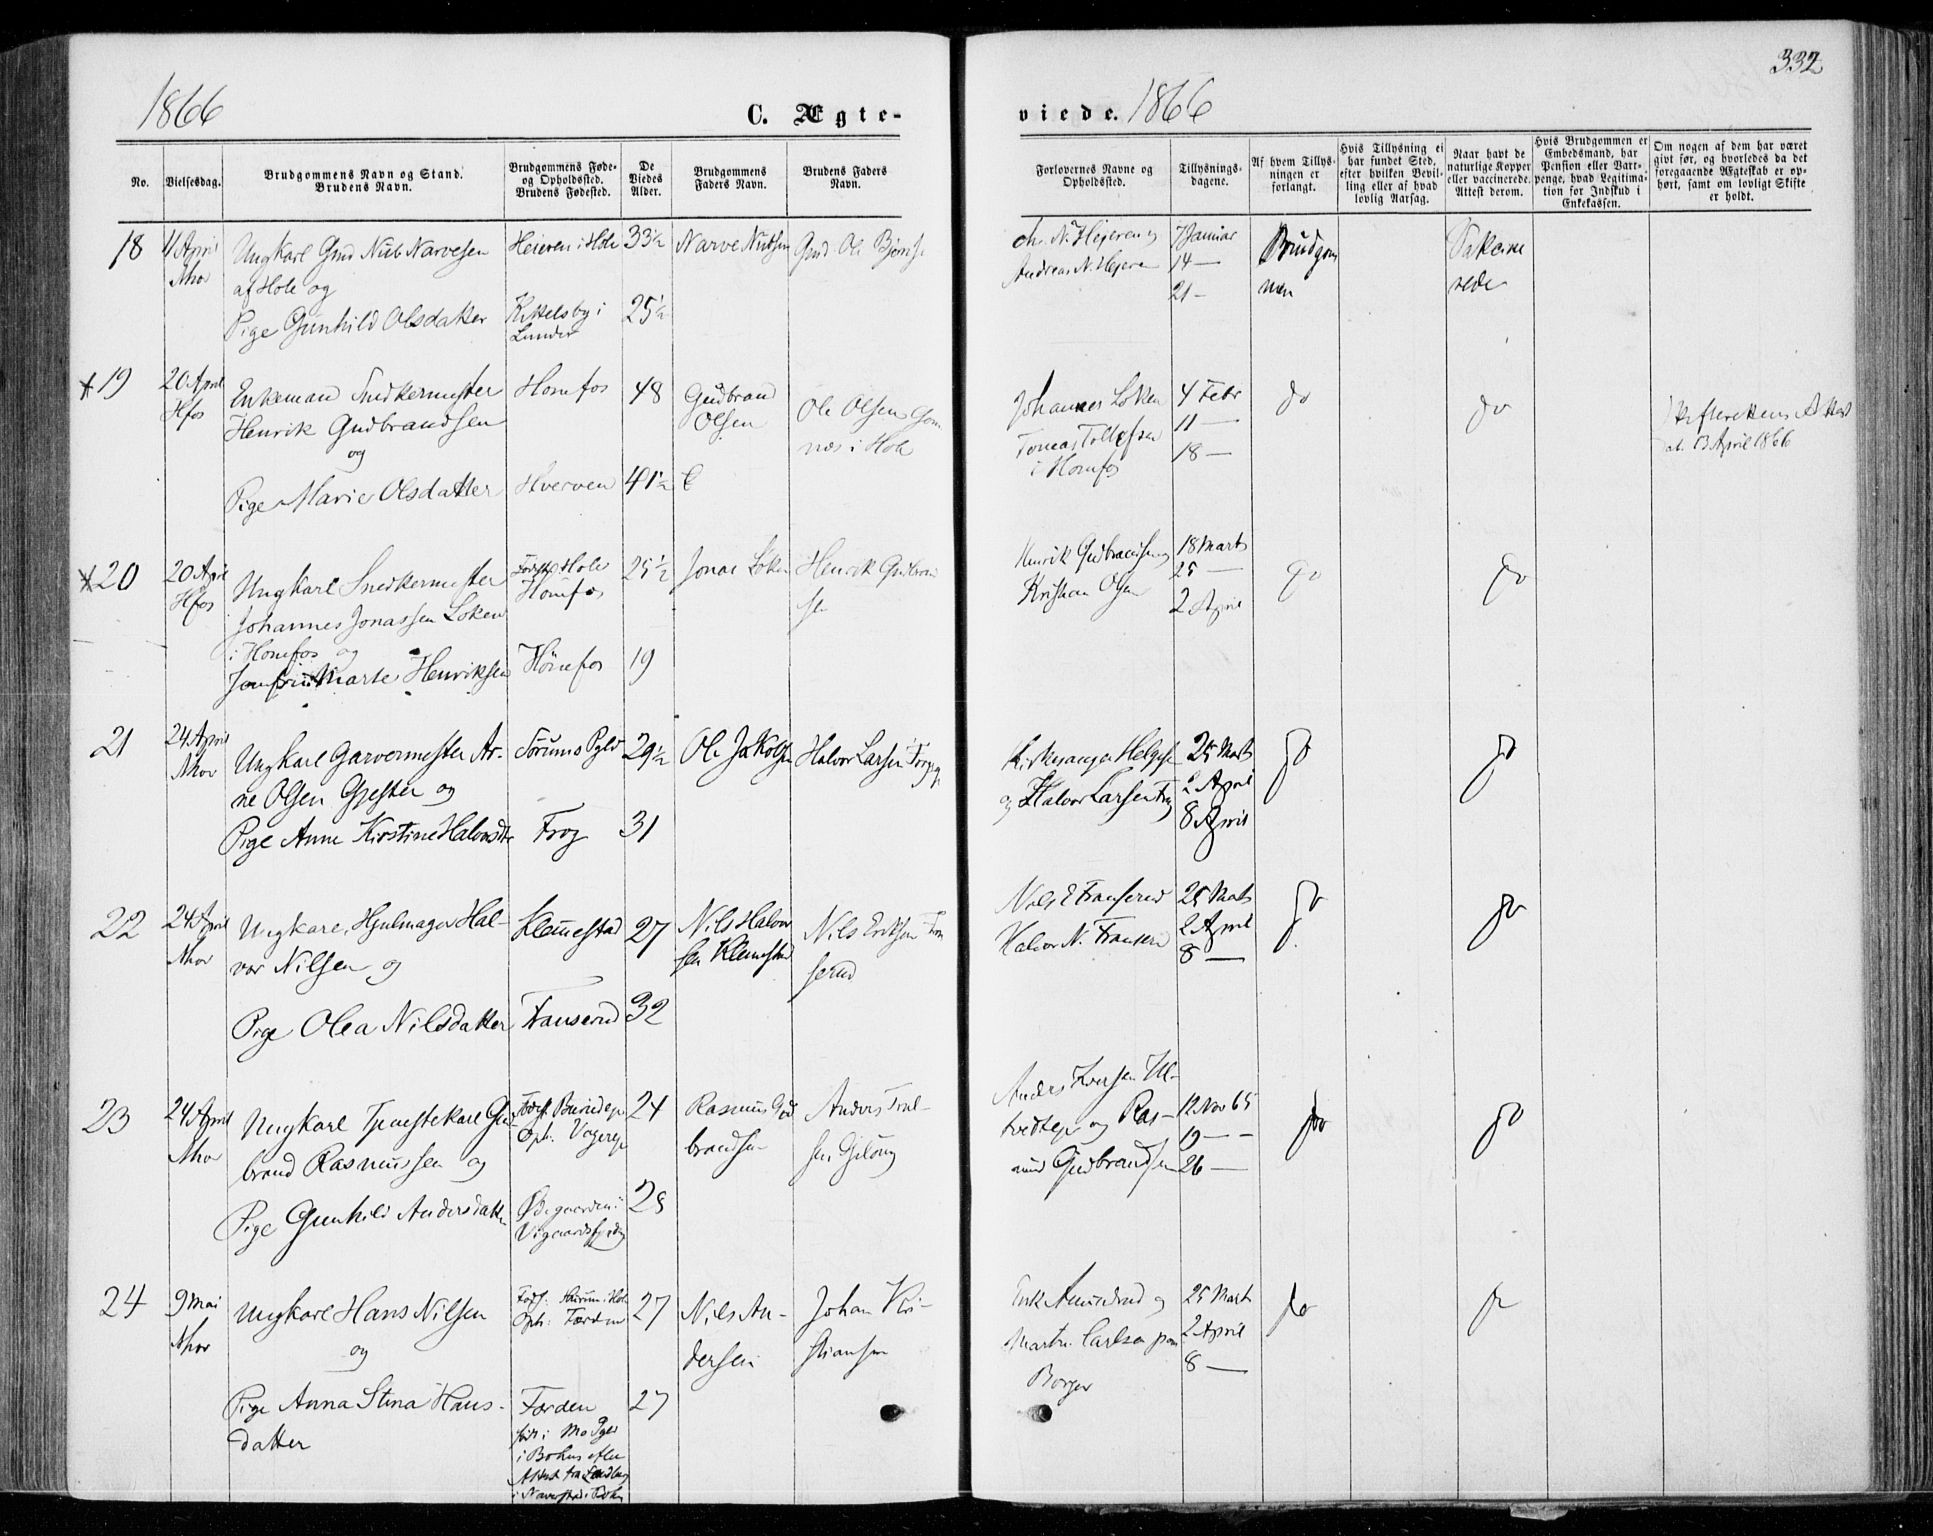 332
1866
C. Ægte-
viede. 1866
No.
Vielsesdag.
Brudgommens Navn og Stand.
Brudens Navn.
Brudgommens Føde-
og Opholdssted.
Brudens Fødested.
De
Viedes
Alder.
Brudgommens
Faders Navn.
Brudens Faders
Navn.
Forlovernes Navne og
Opholdssted.
Tillysnings-
dagene.
Af hvem Tillys-
ningen er
forlangt.
Hvis Tillysning ei
har fundet Sted,
efter hvilken Bevil-
ling eller af hvad
lovlig Aarsag.
Naar havt de
naturlige Kopper
eller vaccinerede.
Attest derom.
Hvis Brudgommen er
Embedsmand, har
Pension eller Vart-
penge, hvad Legitima-
tion for Indskud i
Enkekassen.
Om nogen af dem har været
givt før, og hvorledes da det
foregaaende Ægteskab er op-
hørt, samt om lovligt Skifte
er holdt.
18
April
Nhov
Ungkarl Gud Nub Narvesen
af Hole og
Pige Gunhild Olsdatter
Heieren i Hole
Lunder
33½
25½
Narve Nubsen
Gud Ole Bjørns
Andreas N. Hejeren
7 Januar
14 —
21 —
Brudgom
men
Vakcine
rede
19
20 April
Hfos
Enkemand Snedkermester
Henrik Gudbrandsen
og
Pige Marie Olsdatter
Honefos
Hverven
48
41½
Gudbrand
Olsen
Ole Olsen Gom
nes i Hole
Johannes Løken
Tomas Tollefsen
i Honefos
4 Febr
11 —
18 —
do
do
Skifterettens Attest
13 April 1866
20
20 April
Hfos
Ungkarl Snedkermester
Johannes Jonassen Løken
i Honefos og
Jomfru Marte Henriksen
Hole
Hönefos
Hönefos
25½
19
Jonas Løken
Henrik Gudbrand
sen
Henrik Gudbrandsen og
Kristian Olsen
18 Marts
25 —
2 April
do
do
21
24 April
Nhov
Ungkarl Garvermester Ar-
ne Olsen Gjester og
Pige Anne Kirstine Halvorsdtr
Sörums Pgld
Frog
29½
31
Ole Jakobsen
Halvor Larsen Frog
Kirkesanger Helgesen
og Halvor Larsen Frog
25 Marts
2 April
8 April
do
do
22
24 April
Nhov
Ungkarl, Hjulmager Hal-
vor Nilsen og
Pige Olea Nilsdatter
Klemestad
Franserud
27
32
Nils Halvor
sen Klemestad
Nils Eriksen Fran
serud
Nils E Franserud
Halvor N. Franserud
25 Marts
2 April
8 —
do
do
23
24 April
Nhov
Ungkarl Tjenestekarl Gud-
brand Rasmussen og
Pige Gunhild Andersdatter
Ødegaarden i
24
28
Rasmus Gud
brandsen
Anders
Anders Iversen Ul-
tvedteje og Ras-
mus Gudbrandsen
12 Nov 65
19 —
26 —
do
do
24
9 Mai
Nhov
Ungkarl Hans Nilsen
og
Pige Anna Stina Hans-
datter
Oph: Færden
Færden
født i Mo Pgld
i Bohus efter
Attest fra
27
27
Nils An-
dersen
Johan Kri-
stiansen
Erik Amundrud og
Martin Carlsen paa
Borger
25 Marts
2 April
8 —
do
do